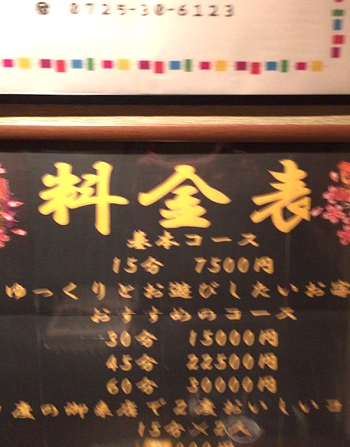 ☎ 0725-30-6123
料金表
基本コース
15分 7500円
ゆっくりとお遊びしたいお客
おすすめのコース
30分 15000円
45分 22500円
60分 30000円
度の御来店で2度おいしい日
15分×2人